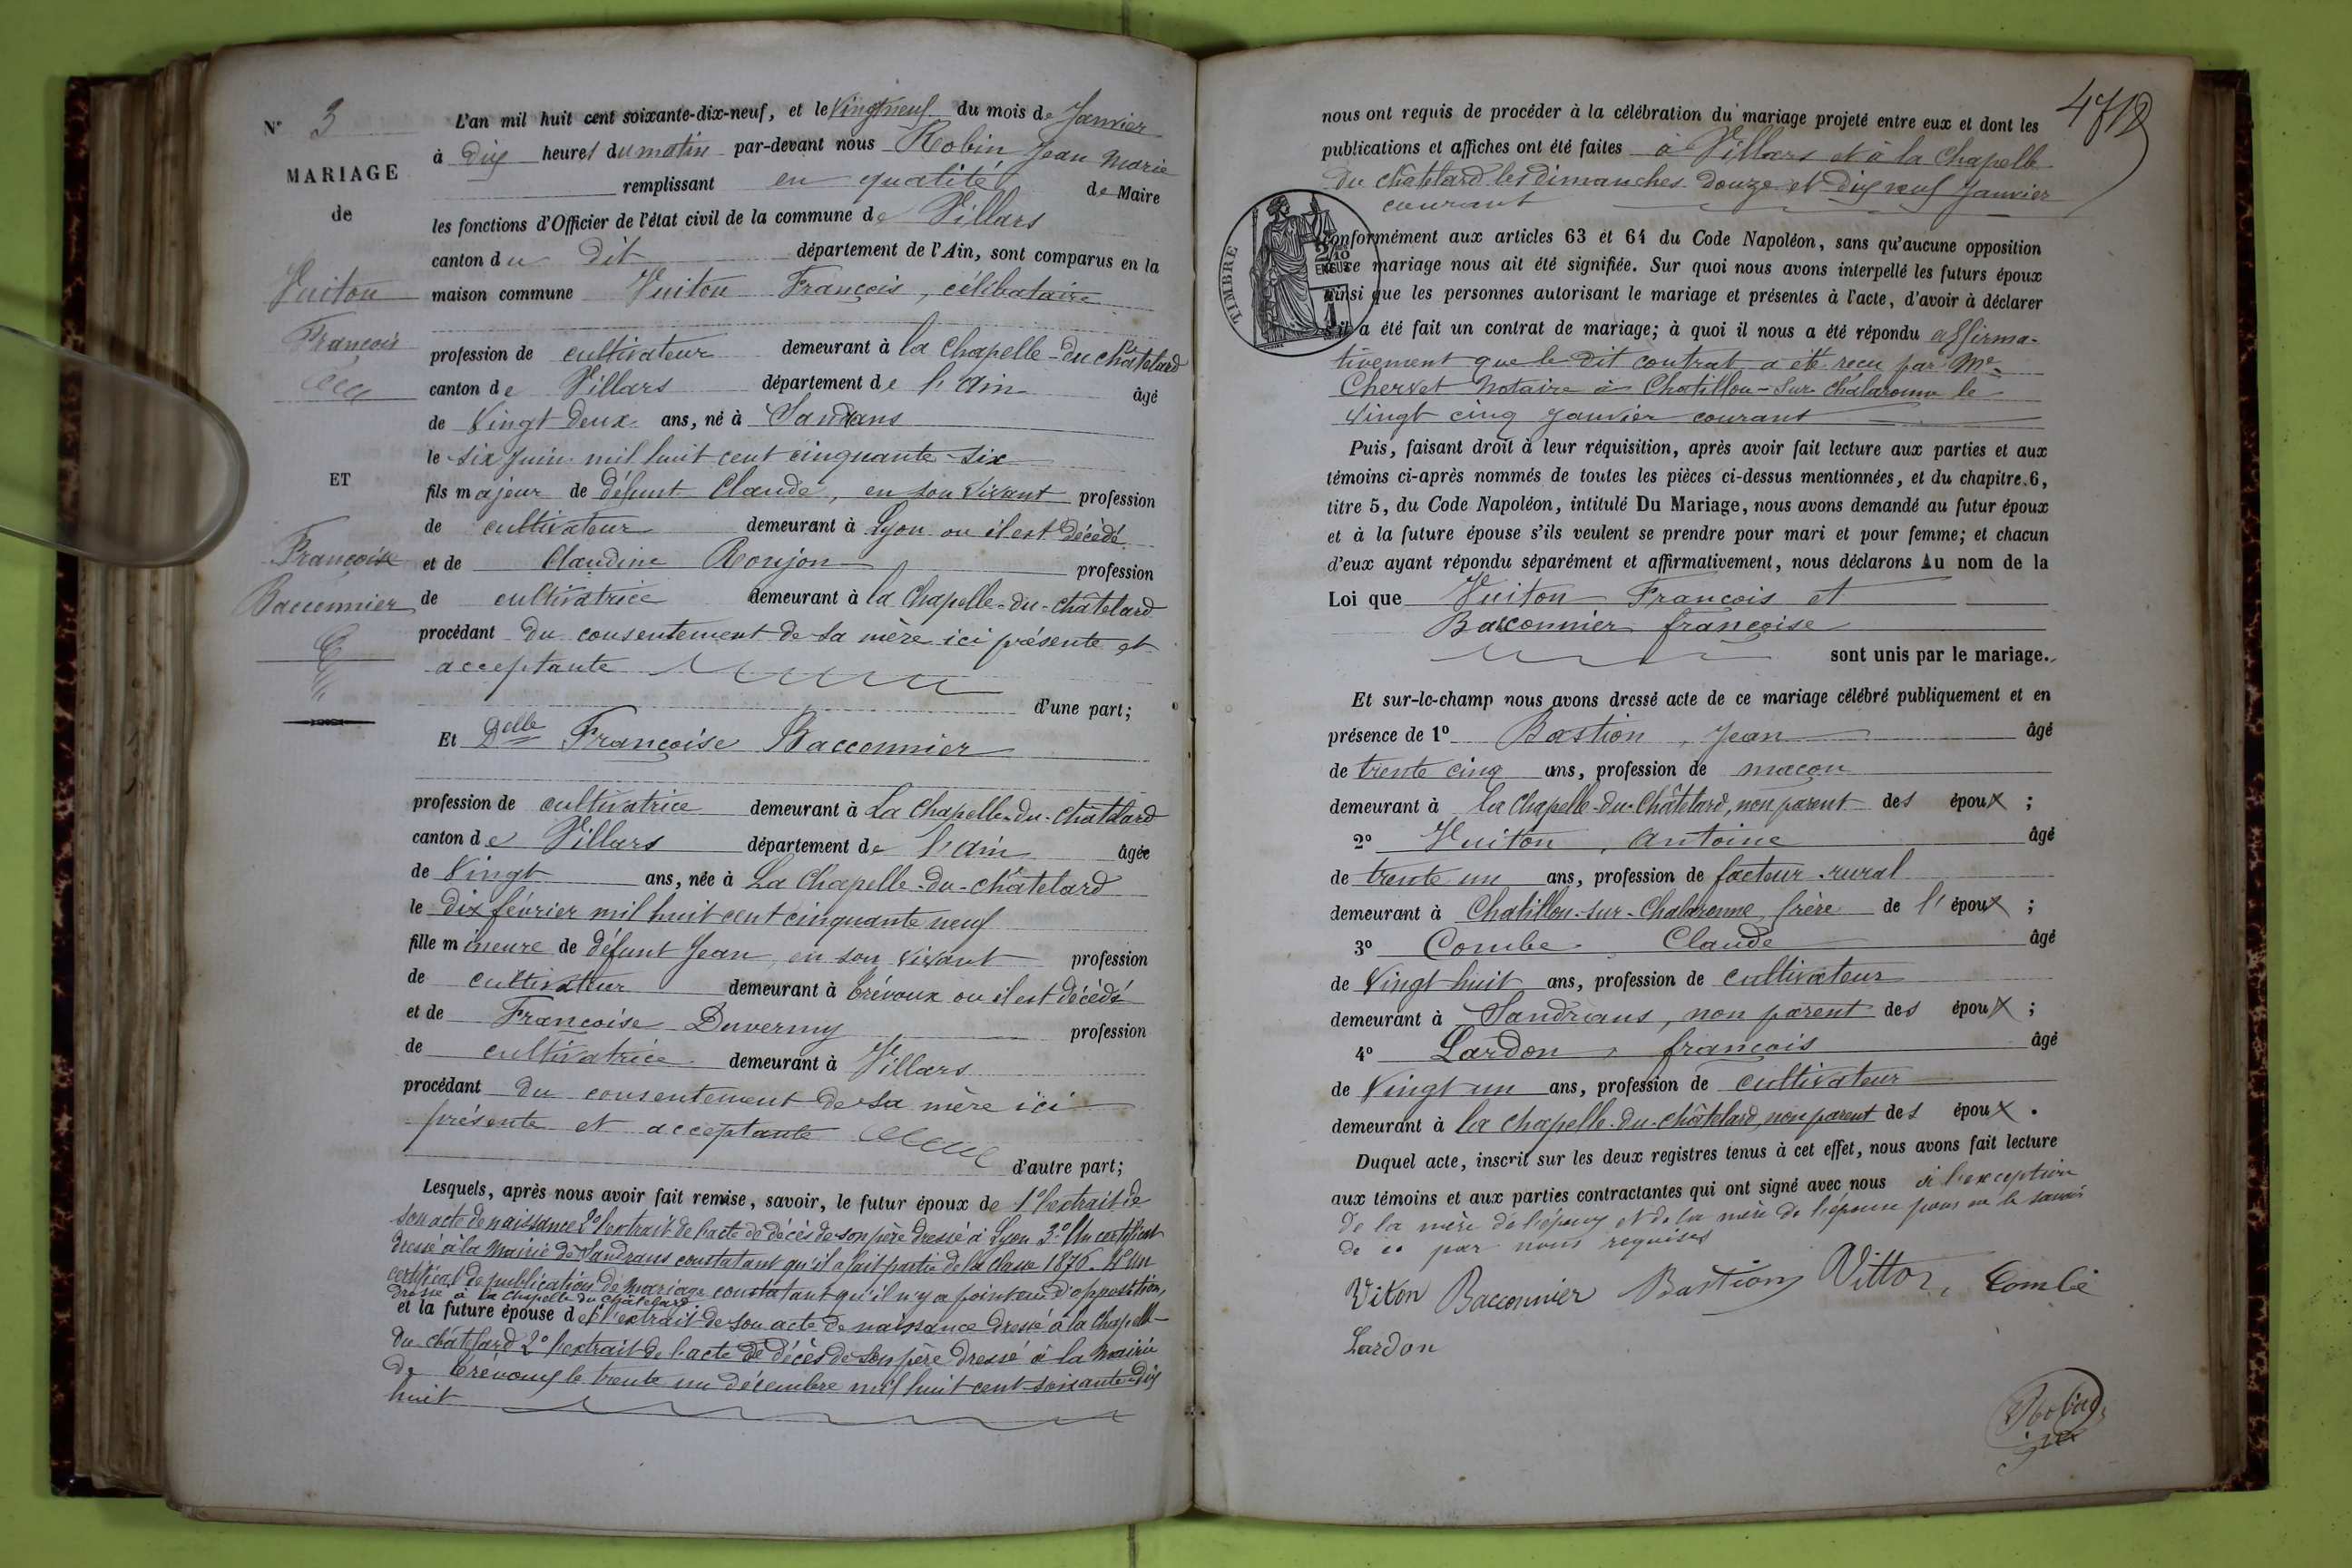 N° 3
MARIAGE
de
Vuiton
François
ET
Françoise
Bacconnier
L'an mil huit cent soixante-dix-neuf, et le vingt neuf du mois de Janvier
à dix heures du matin par-devant nous Robin Jean Marie
remplissant en qualité de Maire
les fonctions d'Officier de l'état civil de la commune de Villars
canton du dit département de l'Ain, sont comparus en la
maison commune Vuiton François, célibataire
profession de cultivateur demeurant à la Chapelle-du-Châtelard
canton de Villars département de l'Ain âgé
de vingt deux ans, né à Sandrans
le six juin mil huit cent cinquante-six
fils majeur de défunt Claude, en son vivant profession
de cultivateur demeurant à Lyon ou il est décédé
et de Claudine Ronjon profession
de cultivatrice demeurant à la Chapelle-du-Châtelard
procédant du consentement de sa mère ici présente et
acceptante
d'une part;
Et Delle Françoise Bacconnier
profession de cultivatrice demeurant à La Chapelle-du-Châtelard
canton de Villars département de l'Ain âgée
de vingt ans, née à La Chapelle-du-Châtelard
le dix février mil huit cent cinquante neuf
fille mineure de défunt Jean, en son vivant profession
de cultivateur demeurant à Trévoux ou il est décédé
et de Françoise Duverny profession
de cultivatrice demeurant à Villars
procédant du consentement de sa mère ici
présente et acceptante
d'autre part;
Lesquels, après nous avoir fait remise, savoir, le futur époux de 1° l'extrait de
son acte de naissance 2° l'extrait de l'acte de décès de son père dressé à Lyon 3° Un certificat
dressé à la Mairie de Sandrans constatant qu'il a fait partie de la classe 1876. 4° Un
certificat de publication de mariage constatant qu'il n'y a point eu d'opposition,
dressé à la Chapelle du Châtelard
et la future épouse de 1° l'extrait de son acte de naissance dressé à la Chapelle-
du-Châtelard 2° l'extrait de l'acte de décès de son père dressé à la Mairie
de Trévoux le trente un décembre mil huit cent soixante-dix
huit
471
nous ont requis de procéder à la célébration du mariage projeté entre eux et dont les
publications et affiches ont été faites à Villars et à la Chapelle
du Châtelard les dimanches douze et dix neuf Janvier
courant
TIMBRE
2/10
EN SUS
conformément aux articles 63 et 64 du Code Napoléon, sans qu'aucune opposition
à ce mariage nous ait été signifiée. Sur quoi nous avons interpellé les futurs époux
ainsi que les personnes autorisant le mariage et présentes à l'acte, d'avoir à déclarer
s'il a été fait un contrat de mariage; à quoi il nous a été répondu affirma-
tivement que le dit contrat a été reçu par Me
Chervet Notaire à Chatillon-sur-Chalaronne le
vingt cinq janvier courant
Puis, faisant droit à leur réquisition, après avoir fait lecture aux parties et aux
témoins ci-après nommés de toutes les pièces ci-dessus mentionnées, et du chapitre 6,
titre 5, du Code Napoléon, intitulé Du Mariage, nous avons demandé au futur époux
et à la future épouse s'ils veulent se prendre pour mari et pour femme; et chacun
d'eux ayant répondu séparément et affirmativement, nous déclarons Au nom de la
Loi que Vuiton François et
Bacconnier françoise
sont unis par le mariage.
Et sur-le-champ nous avons dressé acte de ce mariage célébré publiquement et en
présence de 1° Bastion, Jean âgé
de trente cinq ans, profession de maçon
demeurant à la Chapelle-du-Châtelard, non parent des époux ;
2° Vuiton, Antoine âgé
de trente un ans, profession de facteur rural
demeurant à Chatillon-sur-Chalaronne frère de l'époux ;
3° Combe Claude âgé
de vingt huit ans, profession de cultivateur
demeurant à Sandrans, non parent des époux ;
4° Lardon, françois âgé
de vingt un ans, profession de cultivateur
demeurant à la chapelle-du-châtelard, non parent des époux .
Duquel acte, inscrit sur les deux registres tenus à cet effet, nous avons fait lecture
aux témoins et aux parties contractantes qui ont signé avec nous à l'exception
de la mère de l'époux et de la mère de l'épouse pour ne le savoir
de ce par nous requises
Viton Bacconnier Bastion Vitton, Combe
Lardon
Robin